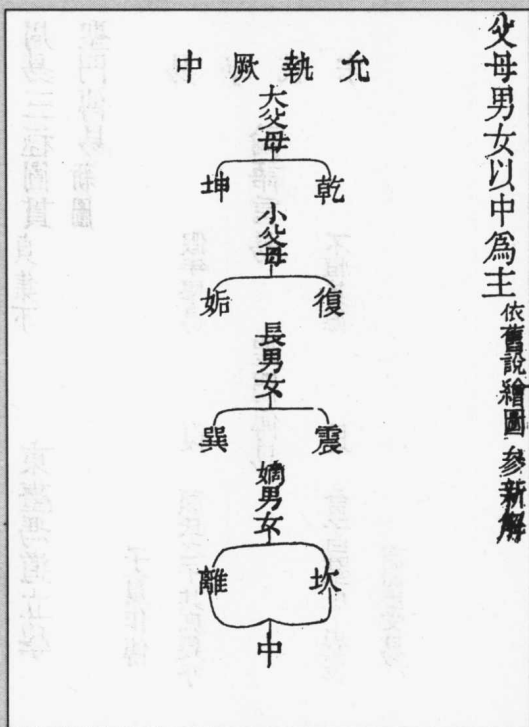 父母男女以中爲主 依舊說繪圖參新解
允執厥中
大父母
乾 坤
小父母
復 姤
長男女
震 巽
嫡男女
坎 離
中